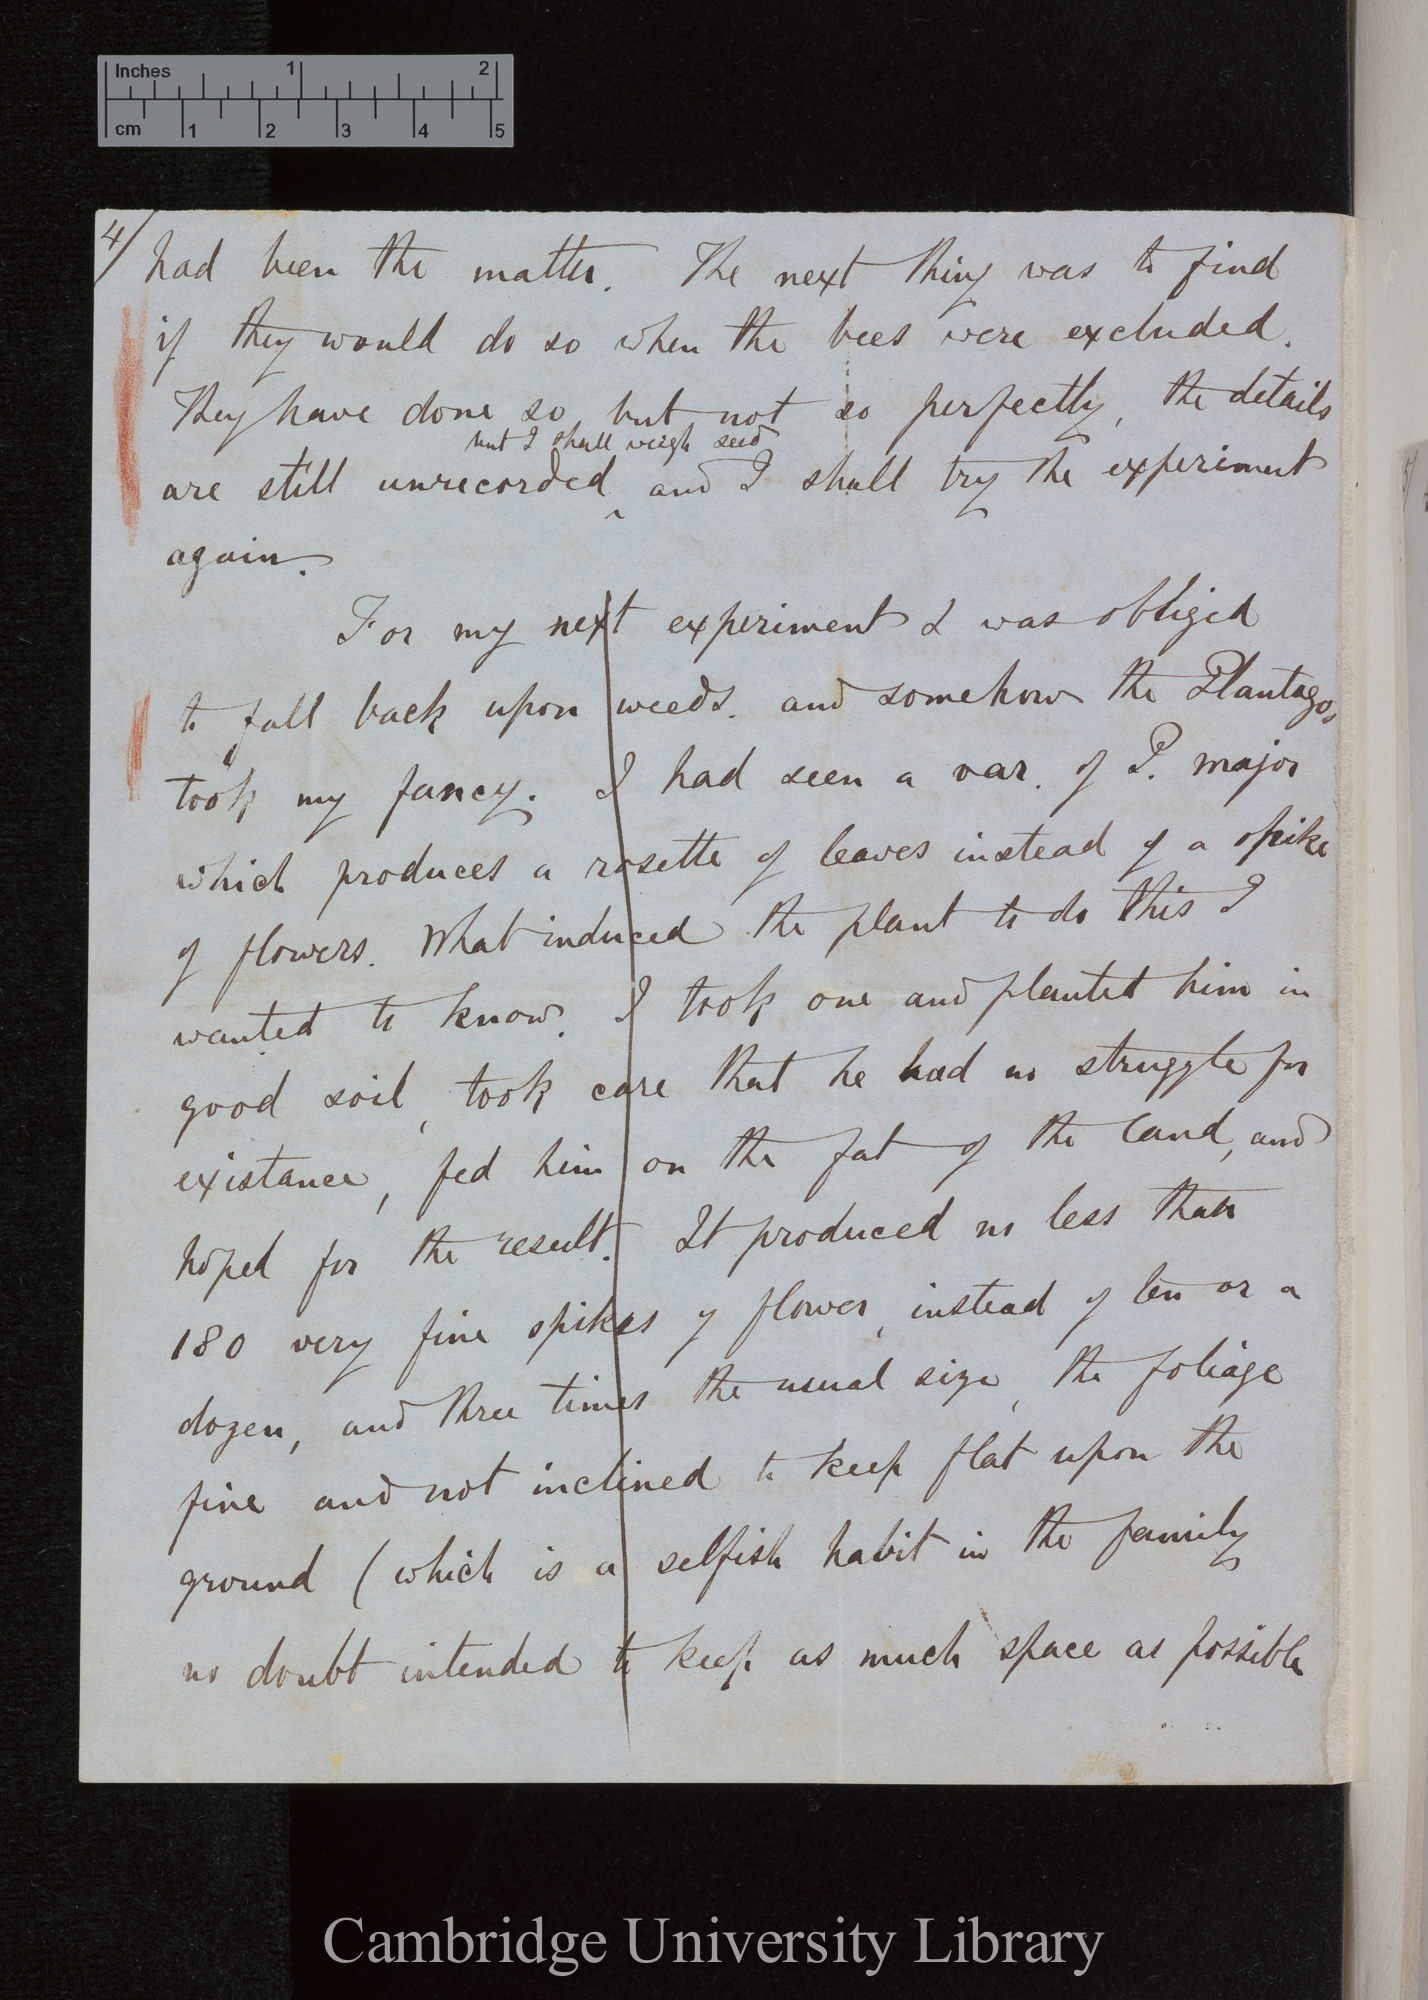 Inches 1 2
cm 1 2 3 4 5
4/
had been the matter. The next thing was to find
if they would do so when the bees were excluded.
They have done so, but not so perfectly, the details
but I shall weigh seed
are still unrecorded ^ and I shall try the experiment
again.
For my next experiment I was obliged
to fall back upon weeds. and somehow the Plantagos
took my fancy. I had seen a var. of P. major
which produces a rosette of leaves instead of a spike
of flowers. What induced the plant to do this I
wanted to know. I took one and planted him in
good soil, took care that he had no struggle for
existance, fed him on the fat of the land, and
hoped for the result. It produced no less than
180 very fine spikes of flower, instead of ten or a
dozen, and three times the usual size, the foliage
fine and not inclined to keep flat upon the
ground (which is a selfish habit in the family
no doubt intended to keep as much space as possible
Cambridge University Library